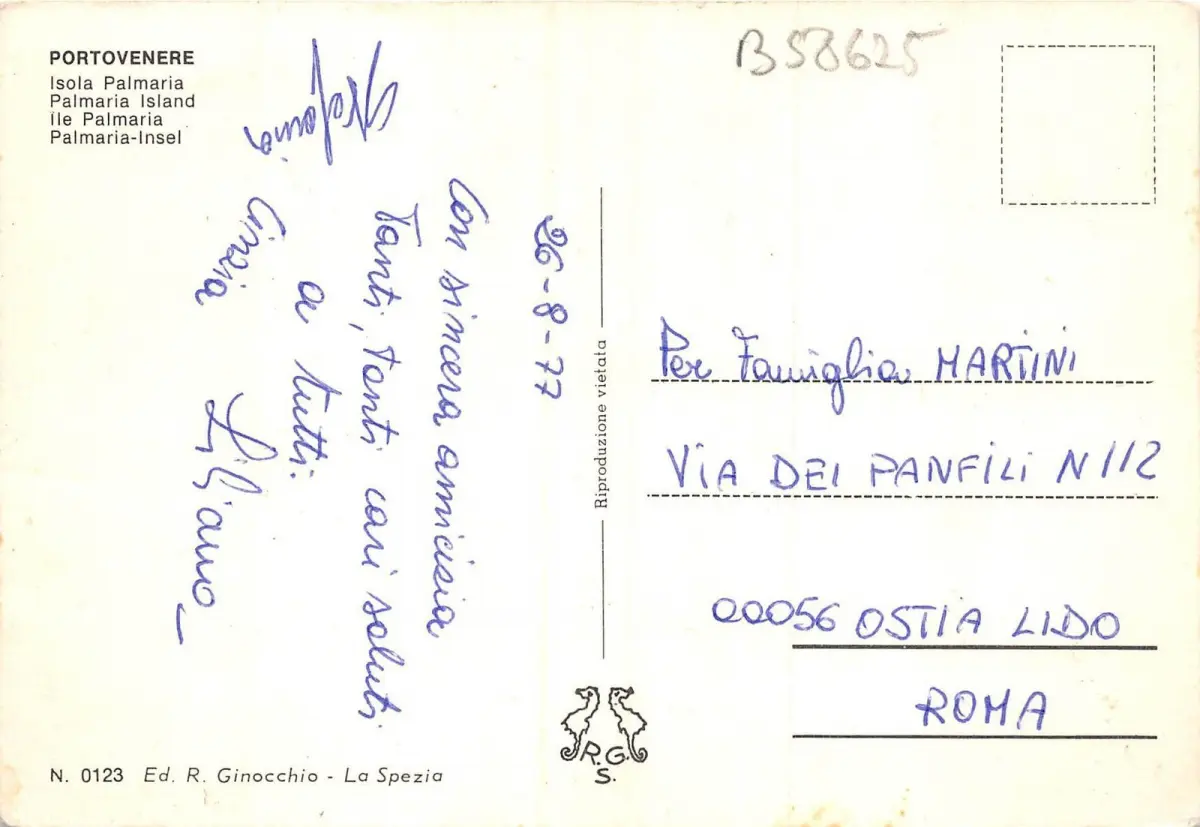 PORTOVENERE
Isola Palmaria
Palmaria Island
Ile Palmaria
Palmaria-Insel
B58625
26-8-77
Con sincera amicizia
Tanti, Tanti cari saluti
a tutti.
Stefania
Cinzia
Liliano
Riproduzione vietata
Per Famiglia MARTINI
VIA DEI PANFILI N 112
00056 OSTIA LIDO
ROMA
R.G.
S.
N. 0123 Ed. R. Ginocchio - La Spezia